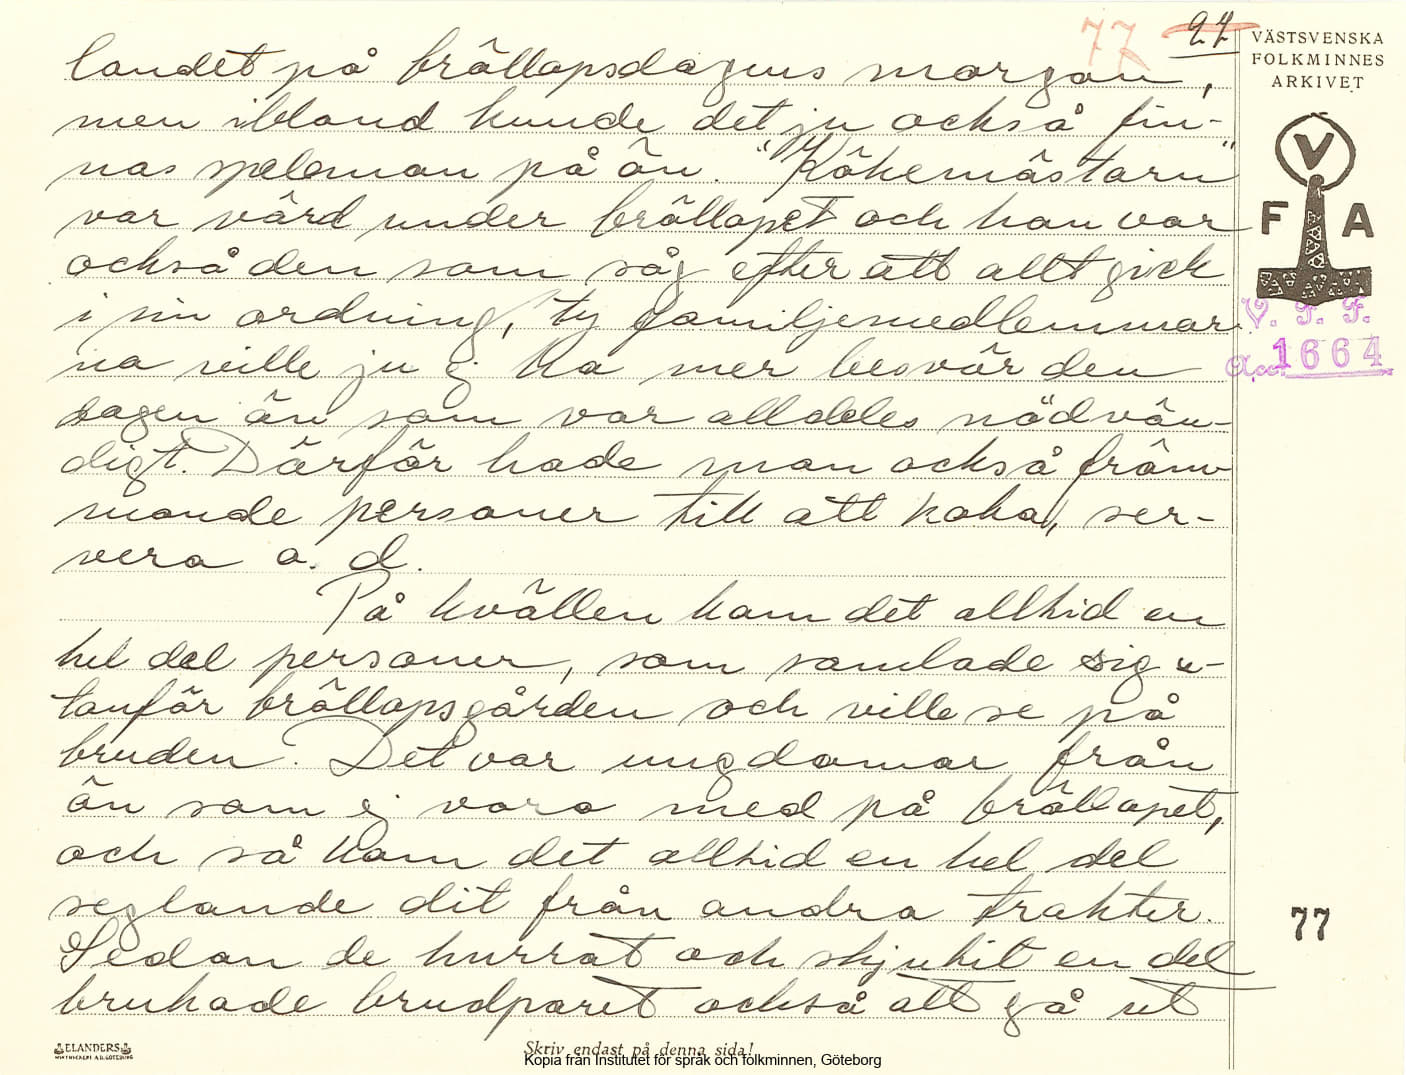 77 27
VÄSTSVENSKA
FOLKMINNES
ARKIVET
V
F A
V. F. F.
Acc. 1664
landet på bröllopsdagens morgon,
men ibland kunde det ju också fin-
nas speleman på ön. "Kökemästarn"
var värd under bröllopet och han var
också den som såg efter att allt gick
i sin ordning, ty familjemedlemmar-
na ville ju ej ha mer besvär den
dagen än som var alldeles nödvän-
digt. Därför hade man också främ-
mande personer till att koka, ser-
vera o. d.
På kvällen kom det alltid en
hel del personer, som samlade sig u-
tanför bröllopsgården och ville se på
bruden. Det var ungdomar från
ön som ej voro med på bröllopet,
och så kom det alltid en hel del
seglande dit från andra trakter.
Sedan de hurrat och skjutit en del
brukade brudparet också att gå ut
77
ELANDERS
Skriv endast på denna sida!
Kopia från Institutet för språk och folkminnen, Göteborg